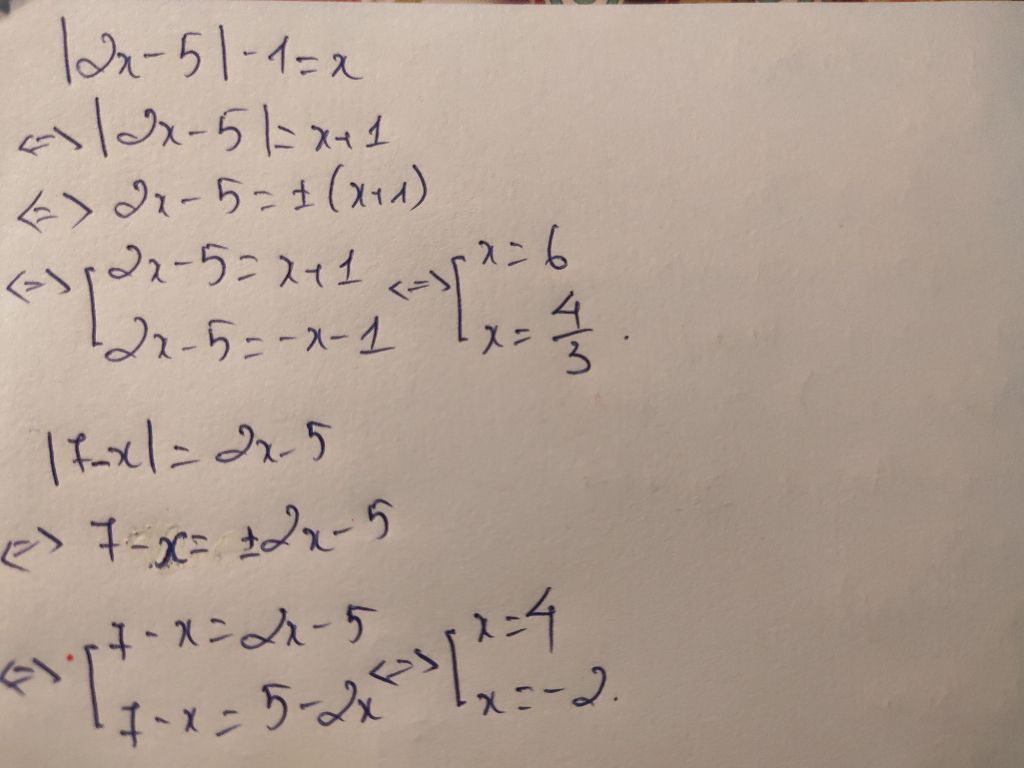 |2x-5|-1=x
<=> |2x-5|=x+1
<=> 2x-5=±(x+1)
<=> [2x-5=x+1 <=> [x=6
2x-5=-x-1 x=4/3.
|7-x|=2x-5
<=> 7-x=±2x-5
<=> [7-x=2x-5 <=> [x=4
7-x=5-2x x=-2.